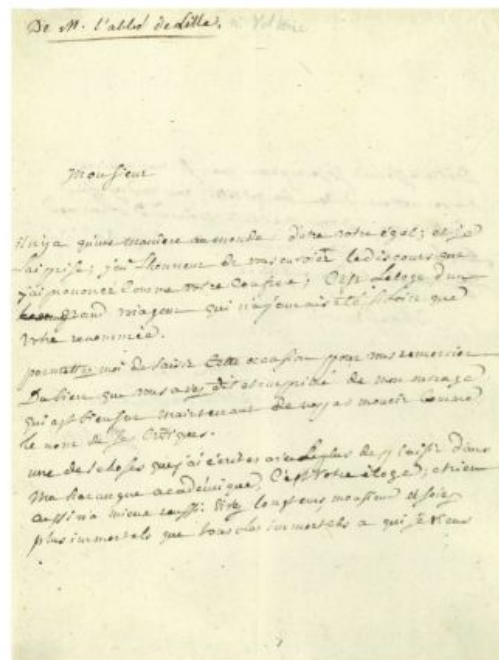 De M. l'abbé de Lille. à Voltaire
Monsieur
il n'y a qu'une maniere au monde d'etre votre égal; et je
l'ai prise; j'ai l'honneur de vous envoier le discours que
j'ai prononcé comme votre confrere; c'est l'eloge d'un
grand voiageur qui n'a jamais été si loin que
votre renommée.
permettez moi de saisir cette occasion pour vous remercier
du bien que vous avez dit et imprimé de mon ouvrage
qui est bien sur maintenant de ne pas mourir comme
le nom de ses critiques.
une des choses que j'ai écrites avec le plus de plaisir dans
ma harangue académique, c'est votre éloge; et rien
aussi n'a mieux reussi. vivez longtems, monsieur et soiez
plus immortels que tous les immortels a qui je viens